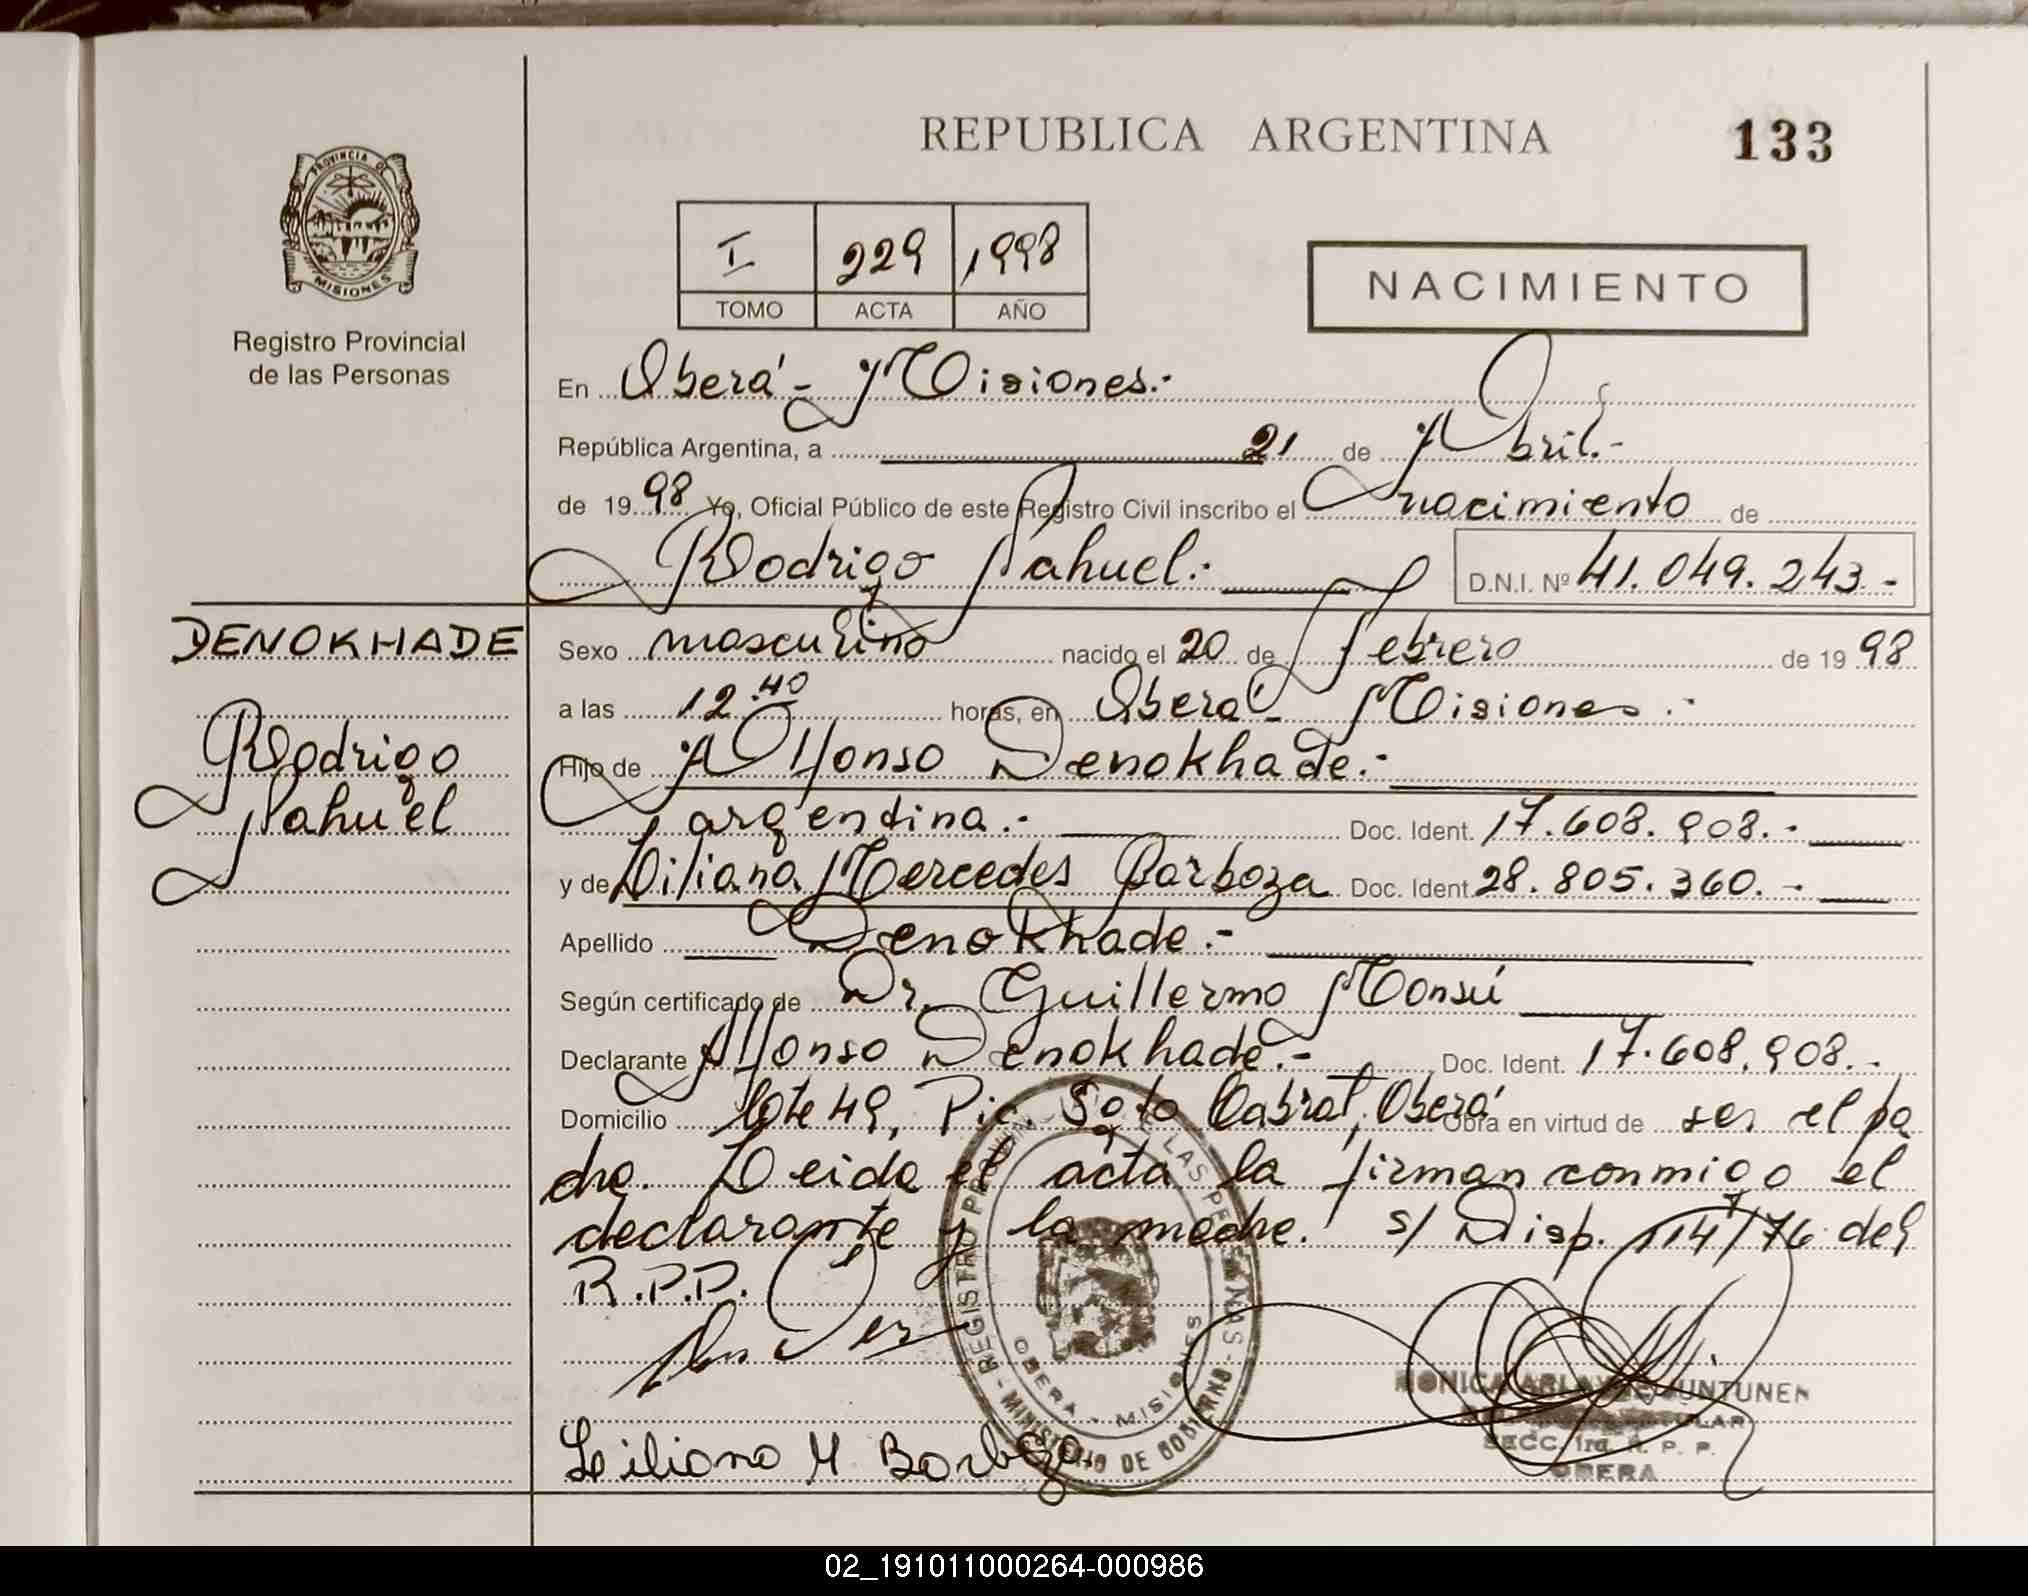 REPUBLICA ARGENTINA
133
PROVINCIA DE
MISIONES
Registro Provincial
de las Personas
I 229 1998
TOMO ACTA AÑO
NACIMIENTO
En Oberá - Misiones.-
República Argentina, a 21 de Abril.-
de 1998 Yo, Oficial Público de este Registro Civil inscribo el nacimiento de
Rodrigo Nahuel.- D.N.I. Nº 41.049.243.-
DENOKHADE
Rodrigo
Nahuel
Sexo masculino nacido el 20 de Febrero de 1998
a las 12.40 horas, en Oberá - Misiones.-
Hijo de Alfonso Denokhade.-
argentina.- Doc. Ident. 17.608.908.-
y de Liliana Mercedes Barboza Doc. Ident. 28.805.360.-
Apellido Denokhade.-
Según certificado de Dr. Guillermo Monsú
Declarante Alfonso Denokhade.- Doc. Ident. 17.608.908.-
Domicilio lote 49, Pic. Sgto Cabral, Oberá Obra en virtud de ser el pa
dre. Leida el acta la firman conmigo el
declarante y la madre. s/ Disp. 114/76 del
R.P.P.
REGISTRO PROVINCIAL DE LAS PERSONAS - MINISTERIO DE GOBIERNO -
OBERA - MISIONES
MONICA JUNTUNEN
TITULAR
SECC. 1ra. R. P. P.
OBERA
Liliana M Barboza
02_191011000264-000986